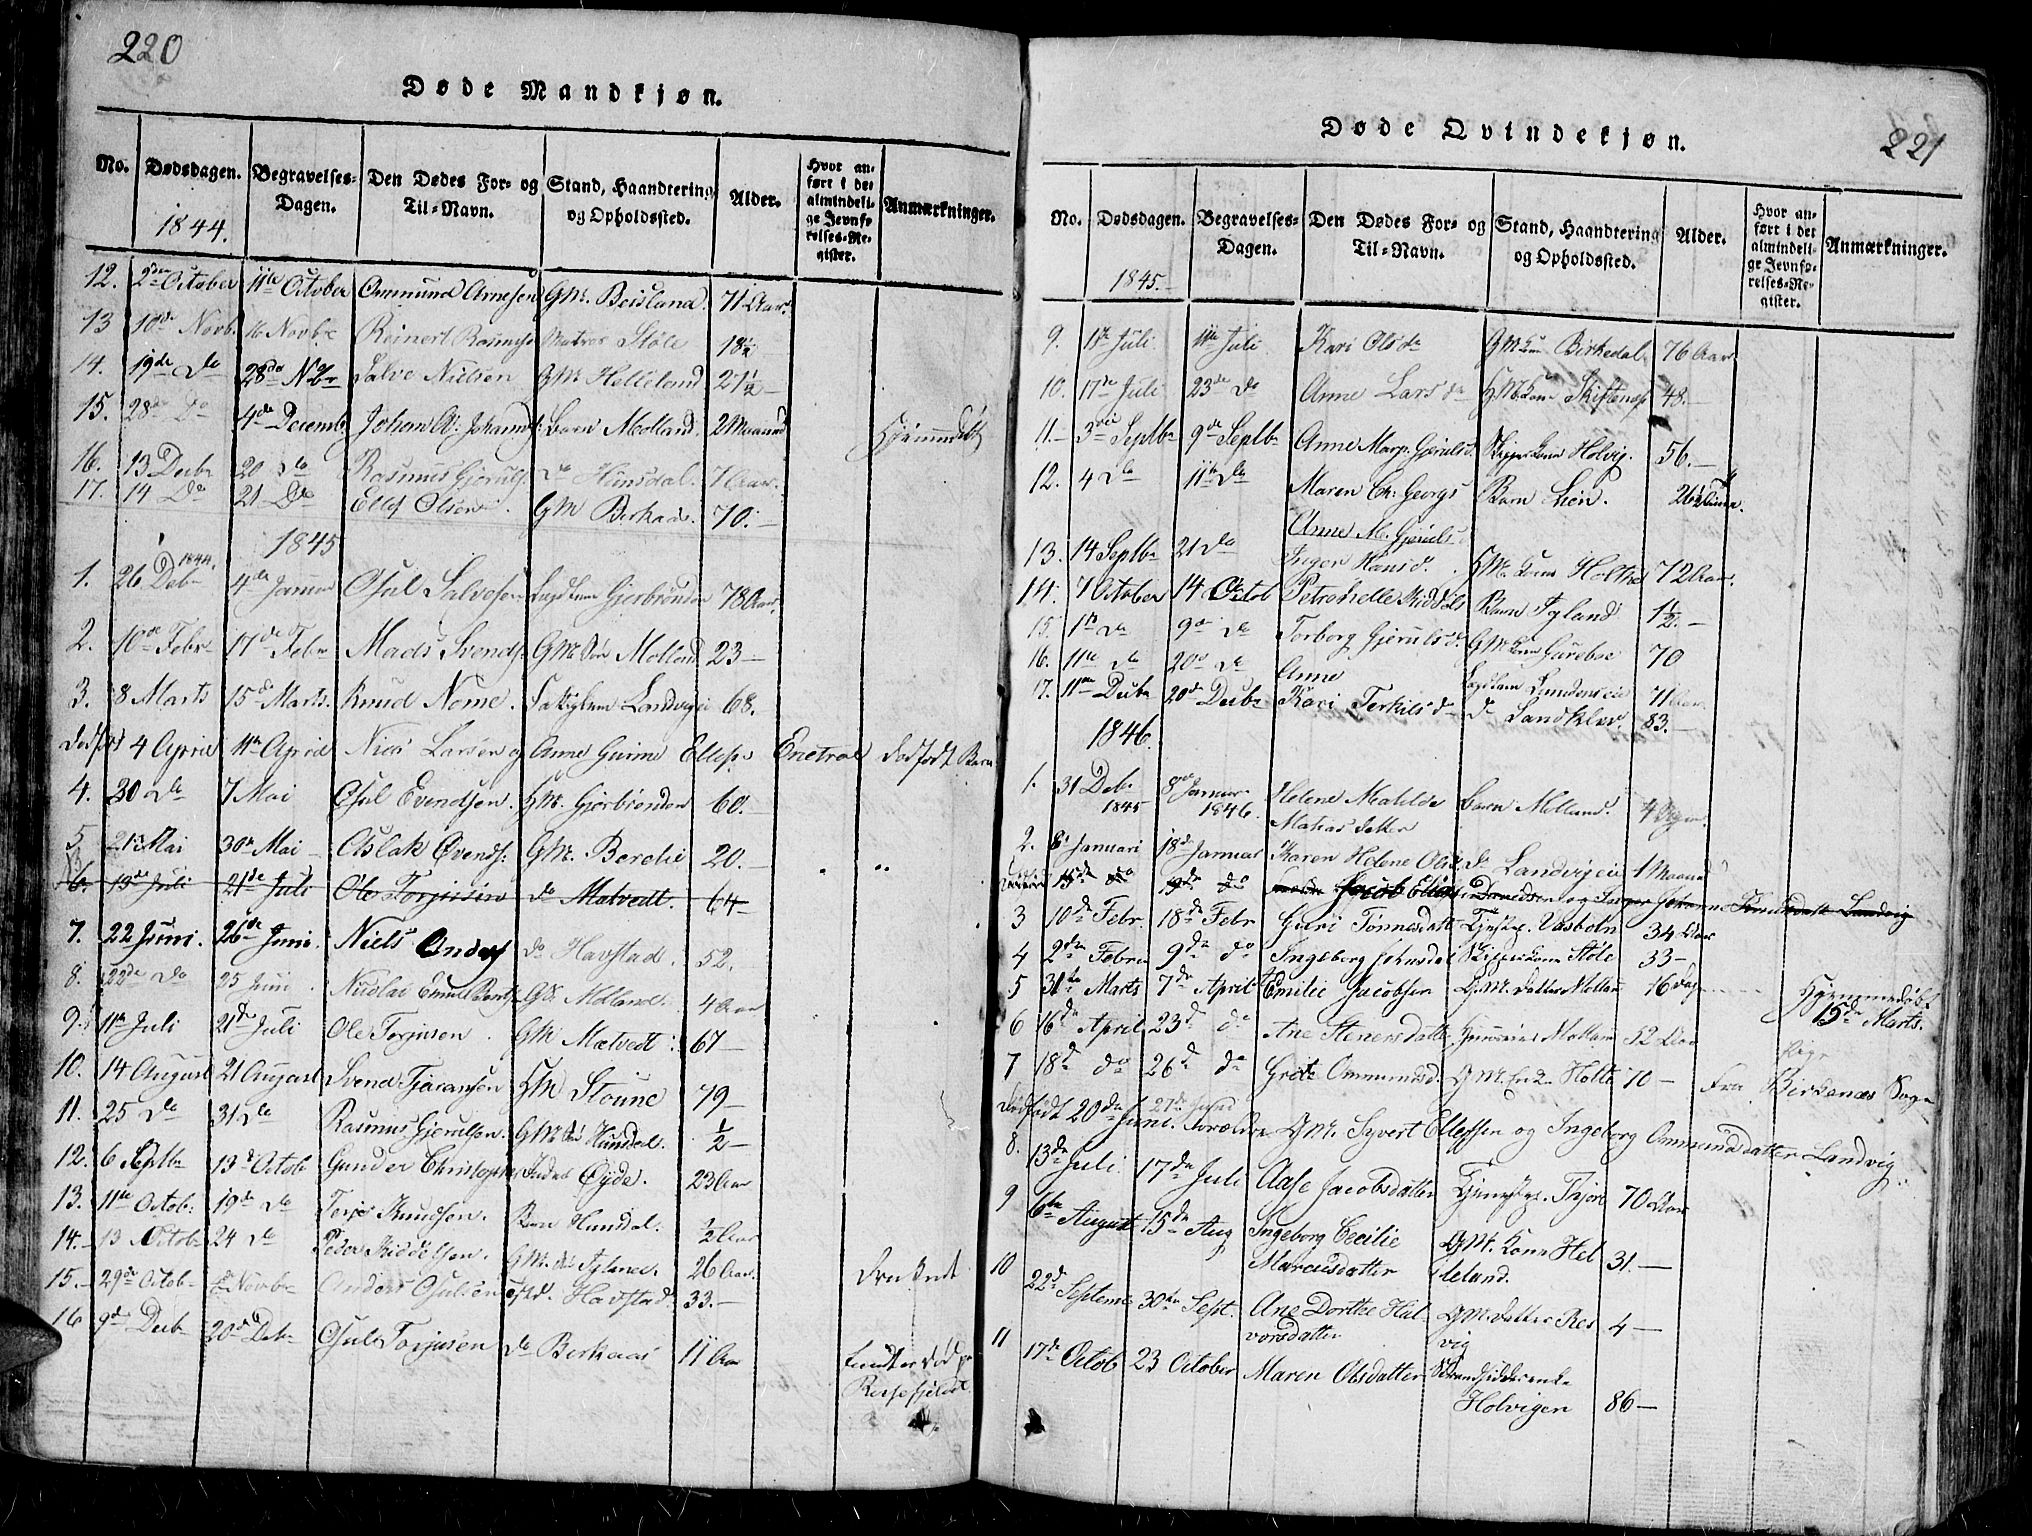 220
Døde Mandkjøn.
No. Dødsdagen. Begravelses-Dagen. Den Dødes For- og Til-Navn. Stand, Haandtering og Opholdssted. Alder. Hvor anført i det almindelige Jevnførelses-Register. Anmærkninger.
1844.
12. 2den October 11te October Ommund Arnesen GM. Beisland. 71 Aar.
13 10de Novb. 16 Novbr Reinert Rasmus Matros Støle 18½
14. 19de Do 28de Nbr Salve Nielsen GM. Helleland 27½ —
15. 28de Do 4de Decemb Johan A: Johannes Barn Molland. 2 Maaned Hjemmedøbt
16. 13 Decbr 20 Do Rasmus Gjeruls. Do Hunsdal. 7 Aar.
17. 14 Do 21 Do Ellef Olsen. GM Berkaas. 70. —
1845
1. 26 Debr 1844. 4de Januar Osul Salvesen Lægdslem Gjerbrønden 78 Aar.
2. 10de Febr 17de Febr Mads Svends. GM Søn Molland 23 —
3. 8 Marts 15de Marts. Knud Nome. Fattiglem Landvigei 68.
Dødfødt 4 April 11te April Niels Larsen og Anne Gurine Ellefs Enetræ dødfødt Barn
4. 30 Do 7 Mai Osul Evendsen. GM. Gjerbrønden 60. —
5. 21 Mai 30te Mai Aslak Øvends: GM. Berelie 20. —
6. 13de Juli 21de Juli Ole Torjusen do Matvedt. 64 —
7. 22 Juni. 26de Juni. Niels Anders Do Havstad. 52.
8. 22de Do 25 Juni. Nicolai Emil Bents GS. Molland. 4 Aar
9. 11te Juli 21de Juli Ole Torjusen. GM Mætvedt. 67 —
10. 14 August 21 August Svend Tjøransen GM Stoune 79 —
11. 25 Do 31 Do Rasmus Gjerulsen. GM Søn Hunsdal. ½ —
12. 6 Septbr 13de Octob Gunder Christophers Inderst Øyde. 23 Aar
13. 11te Octob. 19de Do Torjes Knudsen. Barn Hunsdal. ½ Aar
14. 13 Octob 24 Do Peder Kiddelsen. GM. Søn Tyland. 26 Aar.
15. 29de Octob. Novbr Anders Osulsen Havstad 33. —
16 9de Decbr 20de Debr Osul Torjusen do Berkaas 11 Aar funden død paa
221
Døde Qvindekjøn.
No. Dødsdagen. Begravelses-Dagen. Den Dødes For- og Til-Navn. Stand, Haandtering og Opholdssted. Alder. Hvor anført i det almindelige Jevnførelses-Register. Anmærkninger.
1845. —
9. 1te Juli 11te Juli Kari Olsdr GM Kone Birkedal. 76 Aar
10. 17de Juli 23de Do Anne Lars dr GM. Kone Skiftenes 48. —
11. — 3die Septbr 9de Septbr Anne Marg. Gjeruls d. Skipper Kone Holvig. 56. —
12. 4 Do 11te Do Maren Ch. Georgs Barn Lien. 26½
Anne M. Gjeruls
13. 14 Septbr 21 Do Inger Hans d. GM. Kone Holthe 72 Aar.
14. 7 October 14 Octob Petronelle Kiddels Barn Tyland 1½. —
15. 1te Do 9de Do Torborg Gjeruls d. GM Kone Gureboe 70
16. 11te Do 20de Do Anne Lægdslem 71 Aar
17. 11te Decbr 20de Decbr Kari Terkils dr Do Landklev 83. —
1846.
1. 31 Deb. 1845 8de Januar 1846. Helene Matilde Matias datter Barn Molland. 4 Dage
2. 8de Januari 18de Januar Karen Helene Ols Do Landvigeie 1 Maaned
15de do 19de do Jacob Elias Davidsen og Inger Johanne Tønnesdatter Landvig
3 10de Febr. 18de Febr Guri Tønnesdatt Tjenstep. Vasboln 34 Aar
4 2den Febru 9de do Ingeborg Johnsdat Skipperkone Støle 33 —
5 31te Marts 7de April Emilie Jacobsen GM. datter Molland 16 Dage Hjemmedøbt 15de Marts.
6 16de April 23de do Ane Stenersdatter Huusmands Molland 52 Aar
7 18de do 26de do Grete Ommundsd. GM. Enke Holte 70 — Fra Birkenæs Sogn
Dødfødt 20de Juni. 27de Juni Forældre GM. Syvert Ellefsen og Ingeborg Ommundsdatter Landvig
8. 13de Juli 17de Juli Aase Jacobsdatter Tjenstep. Trjore 70 Aar
9 6te August 15de Aug Ingeborg Cecilie Marcusdatter GM. Kone Helleland. 31. —
10 22de Septemr 30te Sept. Ane Dorthe Halvorsdatter GM. datter Resvig 4 —
11 17de Octob 23 October Maren Olsdatter Strandsidderenke Holvigen 86 —